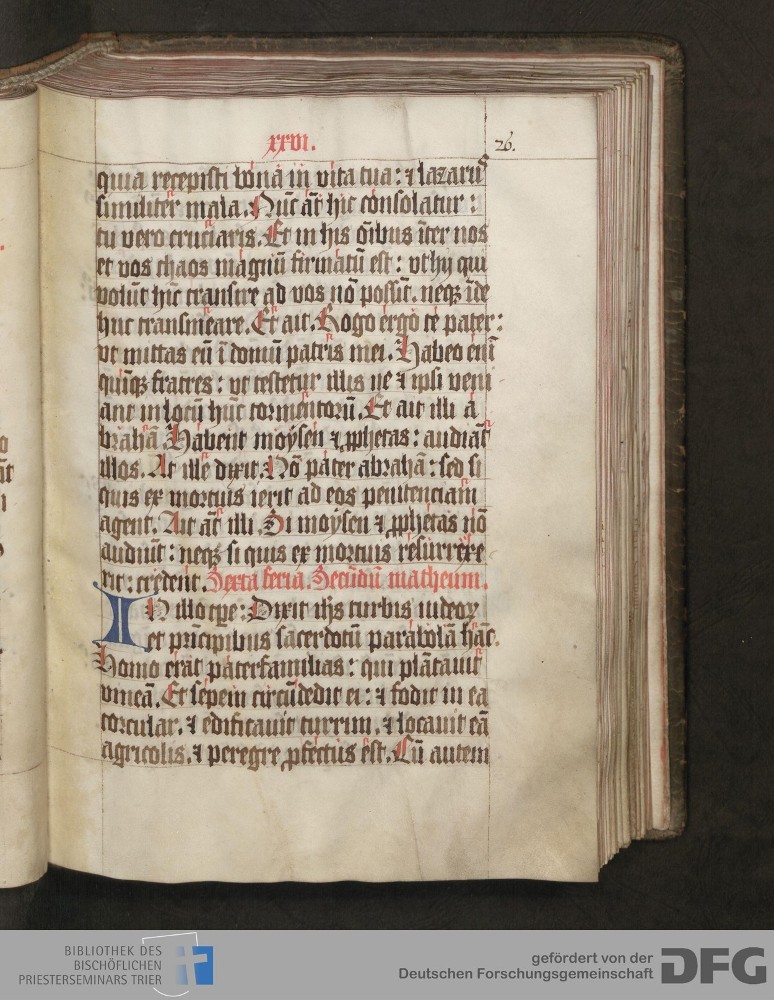 xxvi.
26.
quia recepisti bona in vita tua: ⁊ lazarus
similiter mala. Nūc aūt hic consolatur:
tu vero cruciaris. Et in his oībus īter nos
et vos chaos magnū firmatū est: vt hij qui
volūt hīc transire ad vos nō possūt. neqꝫ īde
huc transmeare. Et ait. Rogo ergo te pater:
vt mittas eū ī domū patris mei. Habeo enī
quīqꝫ fratres: vt testetur illis ne ⁊ ipsi veni
ant in locū hūc tormentorū. Et ait illi a
brahā. Habent moysen ⁊ ꝓphetas: audiāt
illos. At ille dixit. Nō pater abrahā: sed si
quis ex mortuis ierit ad eos penitenciam
agent. Ait aūt illi. Si moysen ⁊ ꝓphetas nō
audiūt: neqꝫ si quis ex mortuis resurrexe
rit: credent. Sexta feria. Secūdū matheum.
IN illo tꝑe: Dixit ihs turbis iudeoꝝ
et prīncipibus sacerdotū parabolā hāc.
Homo erat paterfamilias: qui plātauit
vineā. Et sepem circūdedit ei: ⁊ fodit in ea
torcular. ⁊ edificauit turrim. ⁊ locauit eā
agricolis. ⁊ peregre ꝓfectus est. Cū autem
BIBLIOTHEK DES
BISCHÖFLICHEN
PRIESTERSEMINARS TRIER
gefördert von der
Deutschen Forschungsgemeinschaft
DFG